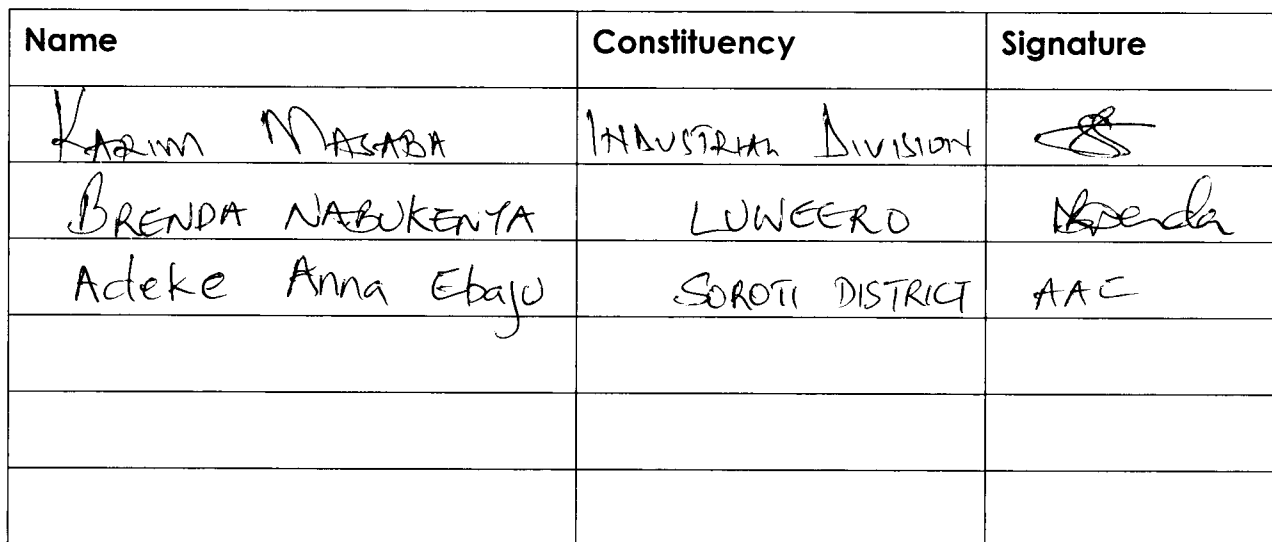 Name Constituency Signature
KARIM MASABA INDUSTRIAL DIVISION
BRENDA NABUKENYA LUWEERO Brenda
Adeke Anna Ebaju SOROTI DISTRICT AAE